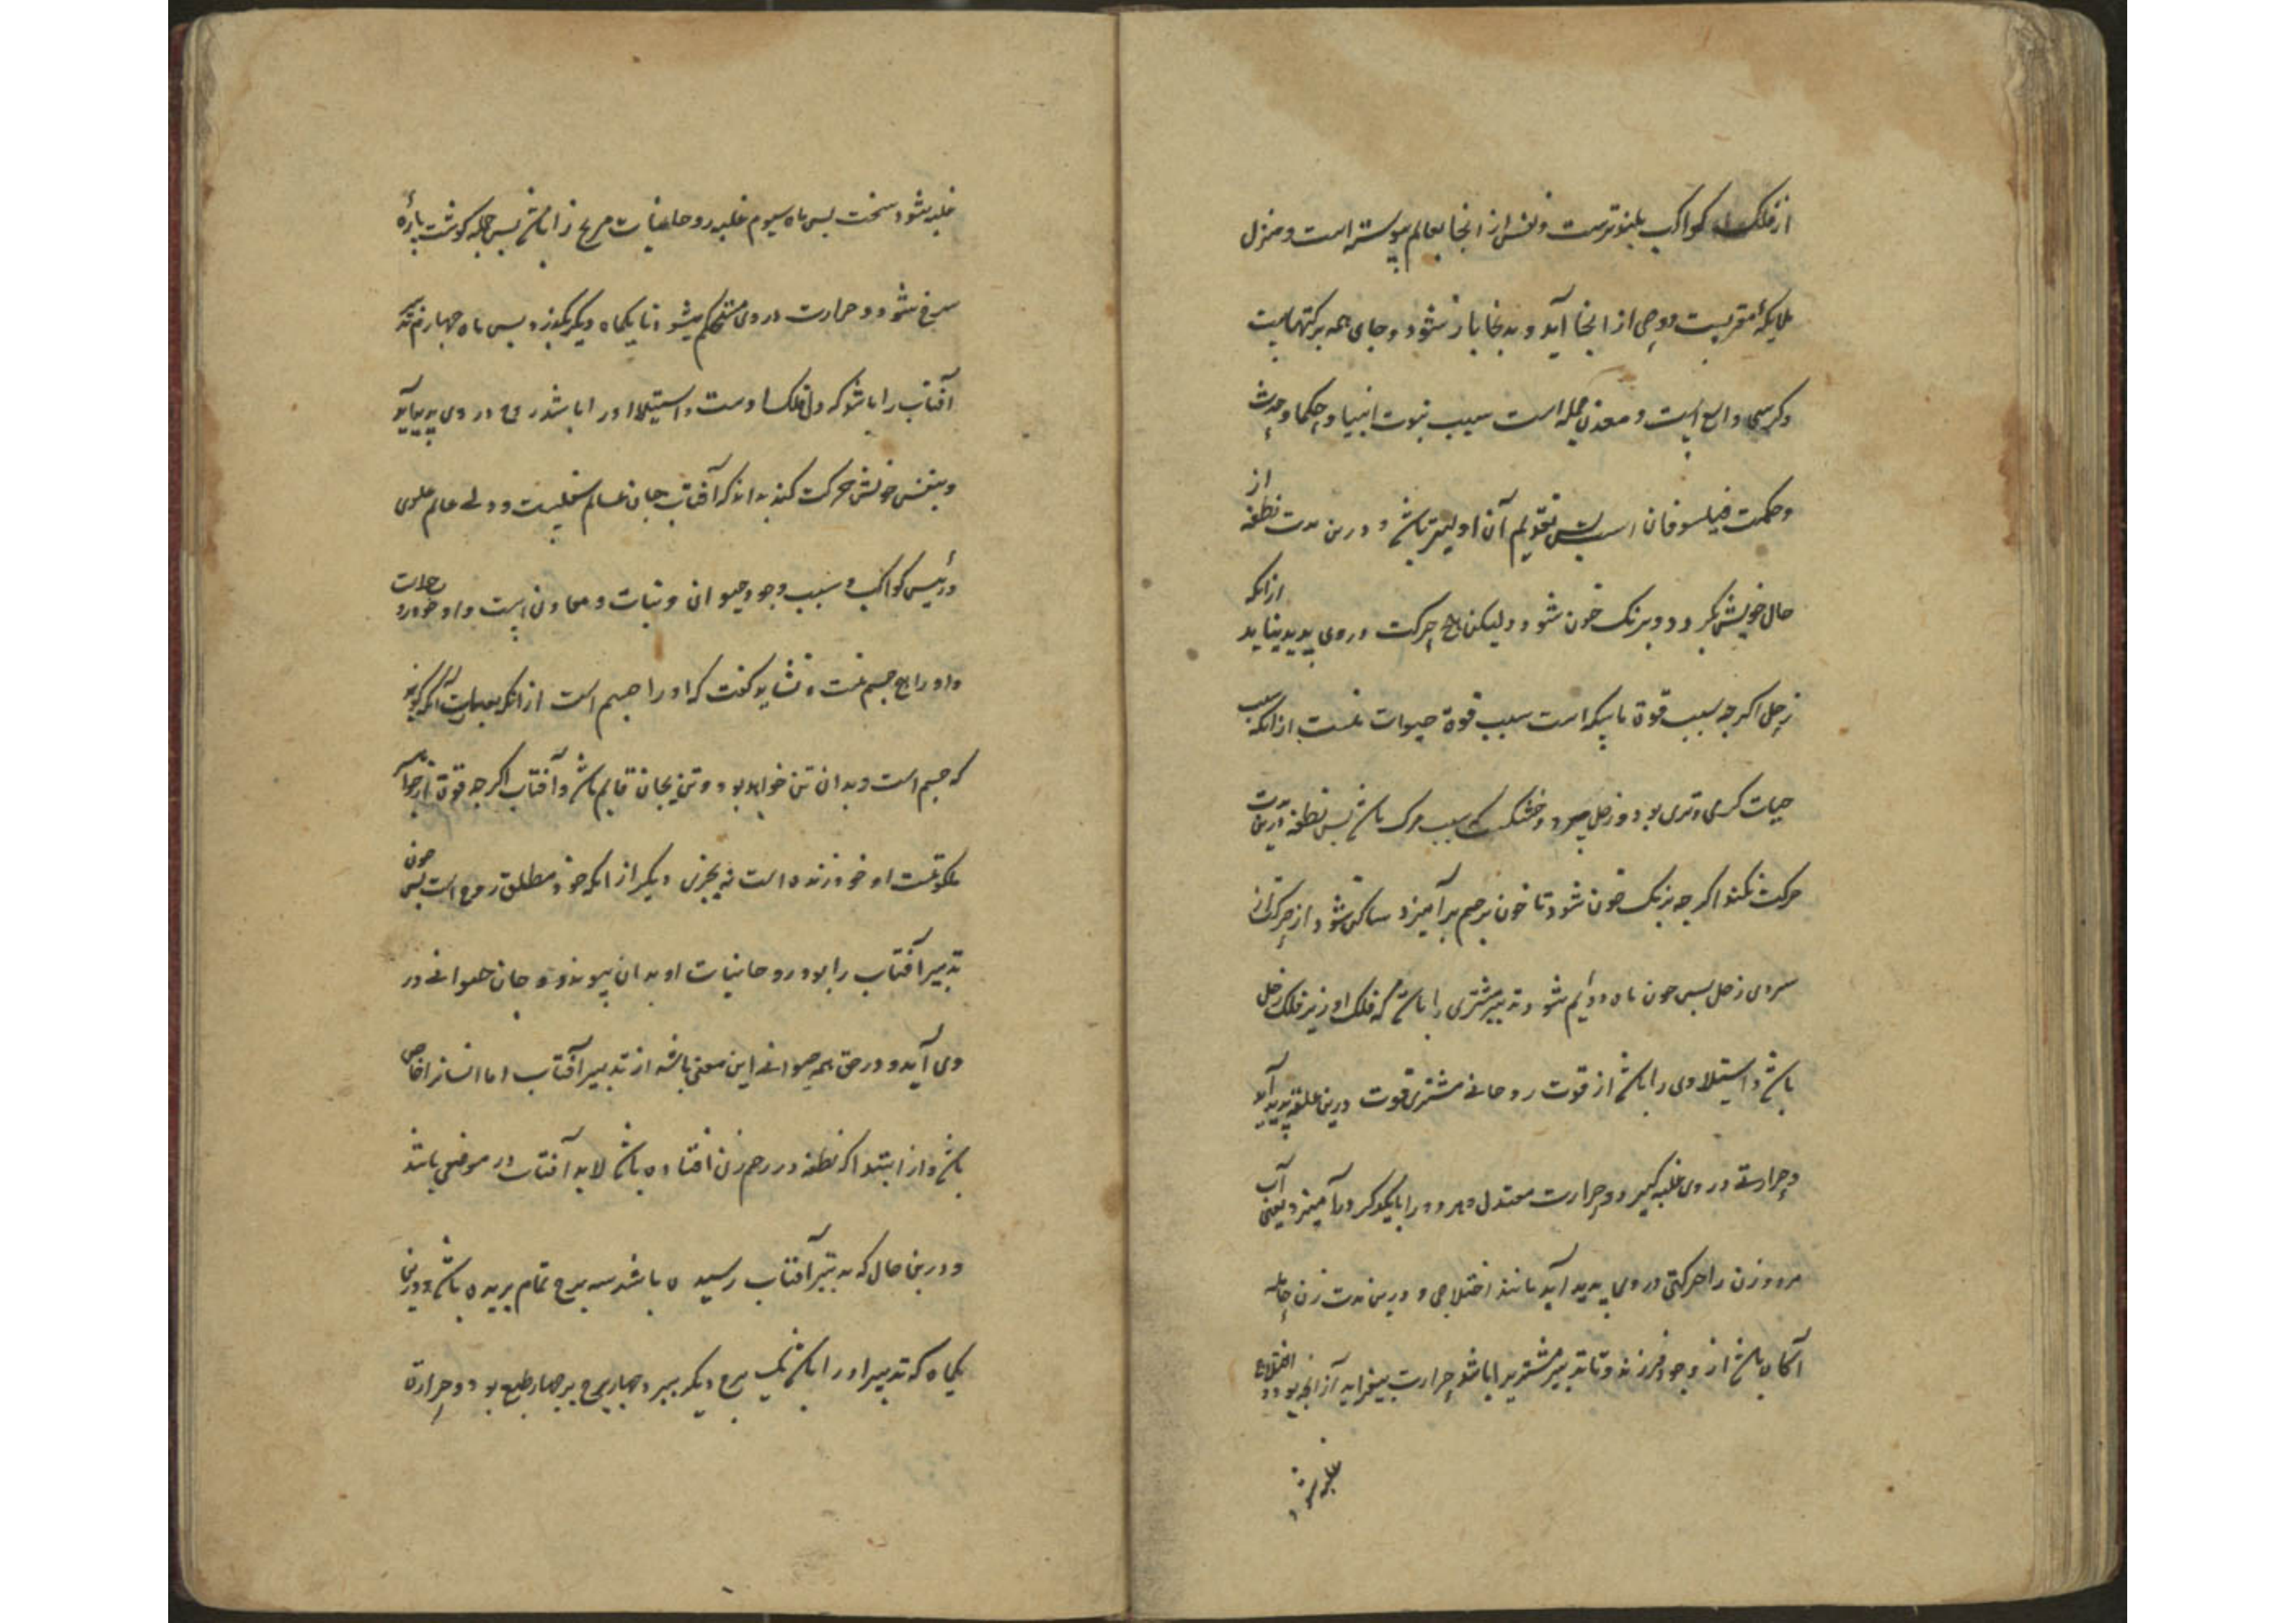 از فلک کواکب بلندترست و نفس از انجا بعالم پیوسته است و منزل
ملایکهٔ مقربست و وحی از انجا آید و بدنجا باز شود و جای همه برکتهاست
و کرسی واسع است و معدن جمله است سبب نبوت انبیا و حکما و حدث
و حکمت فیلسوفان است پس تقویم آن اولیتر باشد و درین مدت نطفه از
حال خویش بگردد و برنک خون شود و لیکن هیچ حرکت در وی پدید نیاید ازانکه
زحل اکرچه سبب قوة ماسکه است سبب قوة حیوات نیست ازانکه سبب
حیات کرمی و تری بود و زحل سرد و خشکست سبب مرک باشد پس نطفه درین مدت
حرکت نکند اکرچه برنک خون شود تا خون برحم برآمیزد ساکن شود از حرکت از
سردی زحل پس جون ماه دوایم شود تدبیر مشتری را باشد که فلک او زیر فلک زحل
باشد و استیلا وی را باشد از قوت روحانی مشتری قوت درین علقه پدید آید
و حرارتی در وی غلبه کیرد و حرارت معتدل و هر دو را بایکدکر درآمیزد یعنی آب
مرد و زن را حرکتی در وی پدید آید مانند اختلاجی و درین مدت زن حامله
آکاه باشد از وجود فرزند و تا تدبیر مشتریرا باشد حرارت بیفزاید ازانجه بود و اختلاج
غلبه شود
غلبه شود سخت پس ماه سیوم غلبه روحانیات مریخ را باشد پس جمله کوشت پارهٔ
سرخ شود و حرارت در وی مستحکم میشود تا یکماه دیکر بکذرد پس ماه چهارم تدبیر
آفتاب را باشد که فلک اوست و استیلا او را باشد روح در وی پدید آید
و بنفس خویش حرکت کند بدانکه آفتاب جان عالم سفلیست و ولی عالم علوی
و رئیس کواکب و سبب وجود حیوان و نبات و معادن است و او خود روحانیت
و او را هیچ جسم نیست و نشاید کفت که او را جسم است ازانکه آنکه کوید
که جسم است و بدان تن خواهد بود و تن بجان قایم باشد و آفتاب اکرچه قوة از
ملکوتیست او خود زنده است نه بچیزی دیکر ازانکه خود مطلق روح است پس چون
تدبیر آفتاب را بود روحانیات او بدان پیوندد و جان حیوانی در
وی آید و در حق همه حیوانی این معنی باشد از تدبیر آفتاب اما انسانرا خاص
باشد و از ابتدا که نطفه در رحم زن افتاده باشد لابد آفتاب در موضعی باشد
و درین حال که بتدبیر آفتاب رسیده باشد سه برج تمام بریده باشد و درین
یکماه که تدبیر او را باشد یک برج دیکر ببرد چهار برج بر چهار طبع بود و حرارة